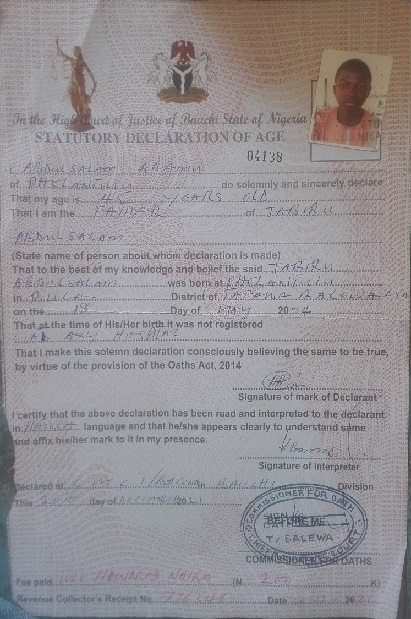 In the High Court of Justice of Bauchi State of Nigeria
STATUTORY DECLARATION OF AGE
04138
I, ABDULSALAM
of do solemnly and sincerely declare
That my age is 45 YEARS OLD
That I am the FATHER of JABIRU
ABDULSALAM
(State name of person about whom declaration is made)
That to the best of my knowledge and belief the said JABIRU
ABDULSALAM was born at
in District of
on the 18 Day of MAY 2004
That at the time of His/Her birth it was not registered
That I make this solemn declaration consciously believing the same to be true,
by virtue of the provision of the Oaths Act, 2014
Signature of mark of Declarant
I certify that the above declaration has been read and interpreted to the declarant
in HAUSA language and that he/she appears clearly to understand same
and affix his/her mark to it in my presence.
Signature of Interpreter
Declared at Division
This day of 2021
COMMISSIONER FOR OATH
BEFORE ME
T/ BALEWA
COMMISSIONER FOR OATHS
Fee paid HUNDRED NAIRA (N 200 K)
Revenue Collector's Receipt No. Date